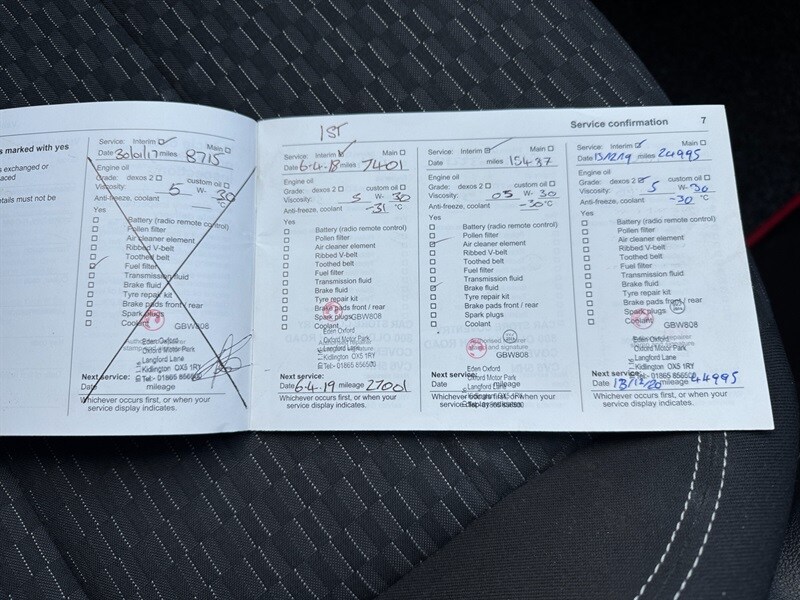 Service confirmation 7
s marked with yes
s exchanged or
aced
etails must not be
Service: Interim Main
Date 30/01/17 miles 8715
Engine oil
Grade: dexos 2 custom oil
Viscosity: 5 W- 30
Anti-freeze, coolant -30
Yes
Battery (radio remote control)
Pollen filter
Air cleaner element
Ribbed V-belt
Toothed belt
Fuel filter
Transmission fluid
Brake fluid
Tyre repair kit
Brake pads front / rear
Spark plugs
Coolant GBW808
Eden Oxford
Oxford Motor Park
Langford Lane
Kidlington OX5 1RY
Tel:- 01865 856500
Next service:
Date mileage
Whichever occurs first, or when your
service display indicates.
1ST
Service: Interim Main
Date 6-4-18 miles 7401
Engine oil
Grade: dexos 2 custom oil
Viscosity: 5 W- 30
Anti-freeze, coolant -31 °C
Yes
Battery (radio remote control)
Pollen filter
Air cleaner element
Ribbed V-belt
Toothed belt
Fuel filter
Transmission fluid
Brake fluid
Tyre repair kit
Brake pads front / rear
Spark plugs GBW808
Coolant
Eden Oxford
Oxford Motor Park
Langford Lane
Kidlington OX5 1RY
Tel:- 01865 856500
Next service:
Date 6-4-19 mileage 27001
Whichever occurs first, or when your
service display indicates.
Service: Interim Main
Date miles 15437
Engine oil
Grade: dexos 2 custom oil
Viscosity: 05 W- 30
Anti-freeze, coolant -30 °C
Yes
Battery (radio remote control)
Pollen filter
Air cleaner element
Ribbed V-belt
Toothed belt
Fuel filter
Transmission fluid
Brake fluid
Tyre repair kit
Brake pads front / rear
Spark plugs
Coolant
GBW808
Eden Oxford
Oxford Motor Park
Langford Lane
Next service:
Date mileage
Whichever occurs first, or when your
service display indicates.
Service: Interim Main
Date 13/12/19 miles 24995
Engine oil
Grade: dexos 2 custom oil
Viscosity: 5 W- 30
Anti-freeze, coolant -30 °C
Yes
Battery (radio remote control)
Pollen filter
Air cleaner element
Ribbed V-belt
Toothed belt
Fuel filter
Transmission fluid
Brake fluid
Tyre repair kit
Brake pads front / rear
Spark plugs
Coolant GBW808
Eden Oxford
Oxford Motor Park
Langford Lane
Kidlington OX5 1RY
Tel:- 01865 856500
Next service:
Date 13/12/20 mileage 44995
Whichever occurs first, or when your
service display indicates.